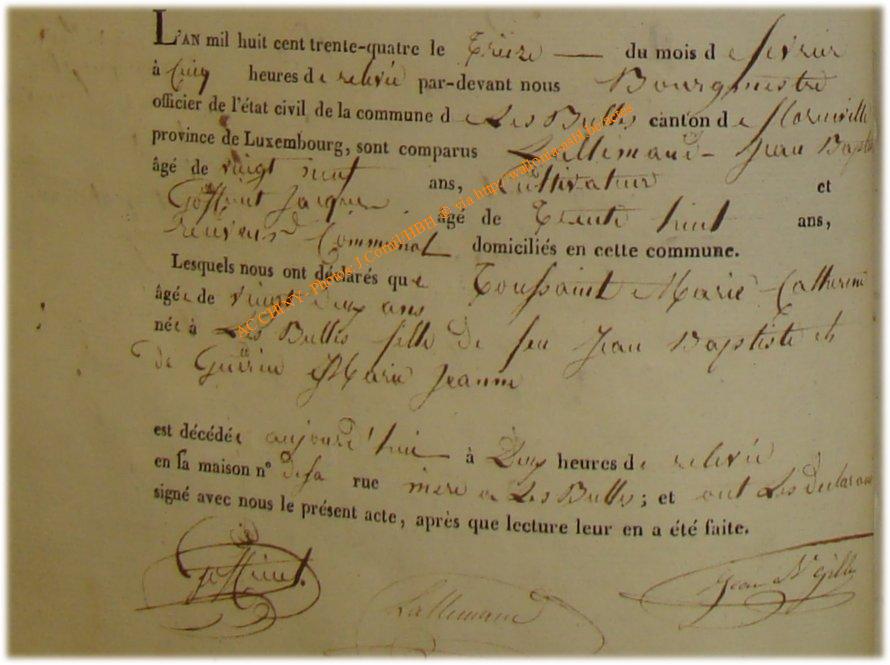 L'AN mil huit cent trente-quatre le Treize du mois de fevrier
à Cinq heures de relevée par-devant nous Bourgmestre
officier de l'état civil de la commune de Les Bulles canton de florenville
province de Luxembourg, sont comparus Lallemand Jean Baptiste
âgé de vingt neuf ans, Cultivateur et
Goffinet Jacques âgé de Trente huit ans,
Receveur Communal domiciliés en cette commune.
Lesquels nous ont déclarés que Toussaint Marie Catherine
âgée de vingt deux ans
née à Les Bulles fille de feu Jean Baptiste et
de Guérin Marie Jeanne
est décédée aujourd'hui à Deux heures de relevée
en sa maison n° de sa rue mere a Les Bulles; et ont Les declarans
signé avec nous le présent acte, après que lecture leur en a été faite.
goffinet
Lallemand
Jean N Gilles
ACCHINY- Photos J Cornil/HBH @ via http: